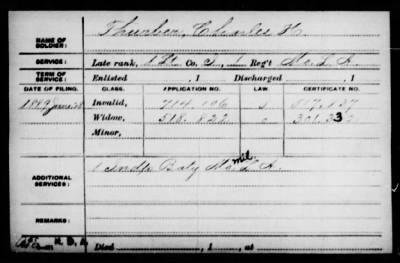 NAME OF SOLDIER: Thurber, Charles H.
SERVICE: Late rank, 1 Lt Co. I, 1 Reg't Mo. L. A.
TERM OF SERVICE: Enlisted , 1 Discharged , 1
DATE OF FILING. CLASS. APPLICATION NO. LAW. CERTIFICATE NO.
1889 June 28 Invalid,
Widow, 518.822
Minor,
ADDITIONAL SERVICES: 1 Indp Baty Mo. mil L. A.
REMARKS:
N. D. A. Died , 1 , at